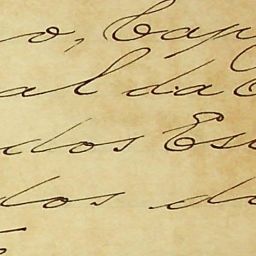 o, Cap
al da
dos Es
dos d